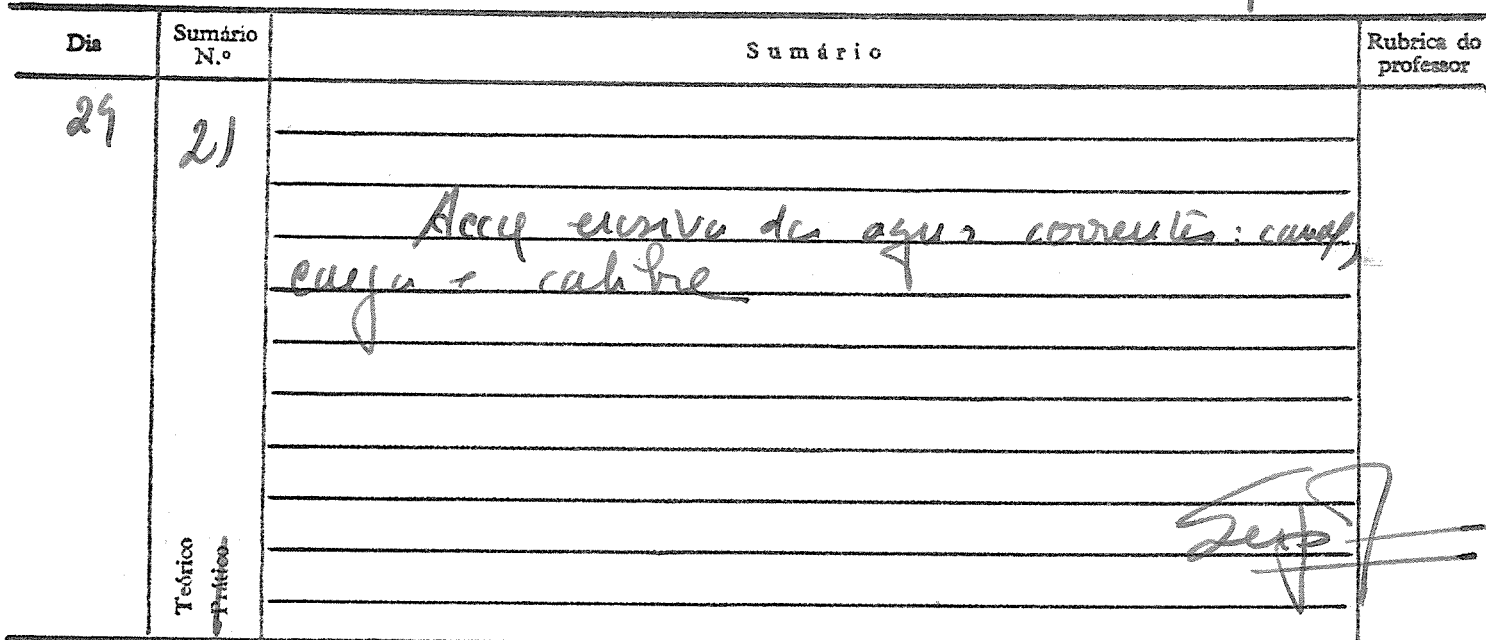 Dia
Sumário N.º
Sumário
Rubrica do professor
29
21
Acção erosiva das aguas correntes: caudal,
carga e calibre
Teórico
Prático